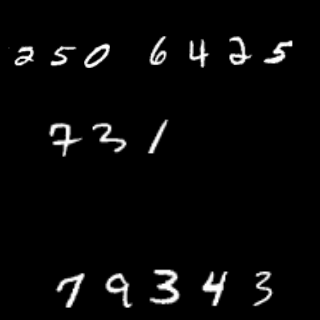 250 6425
731
79343